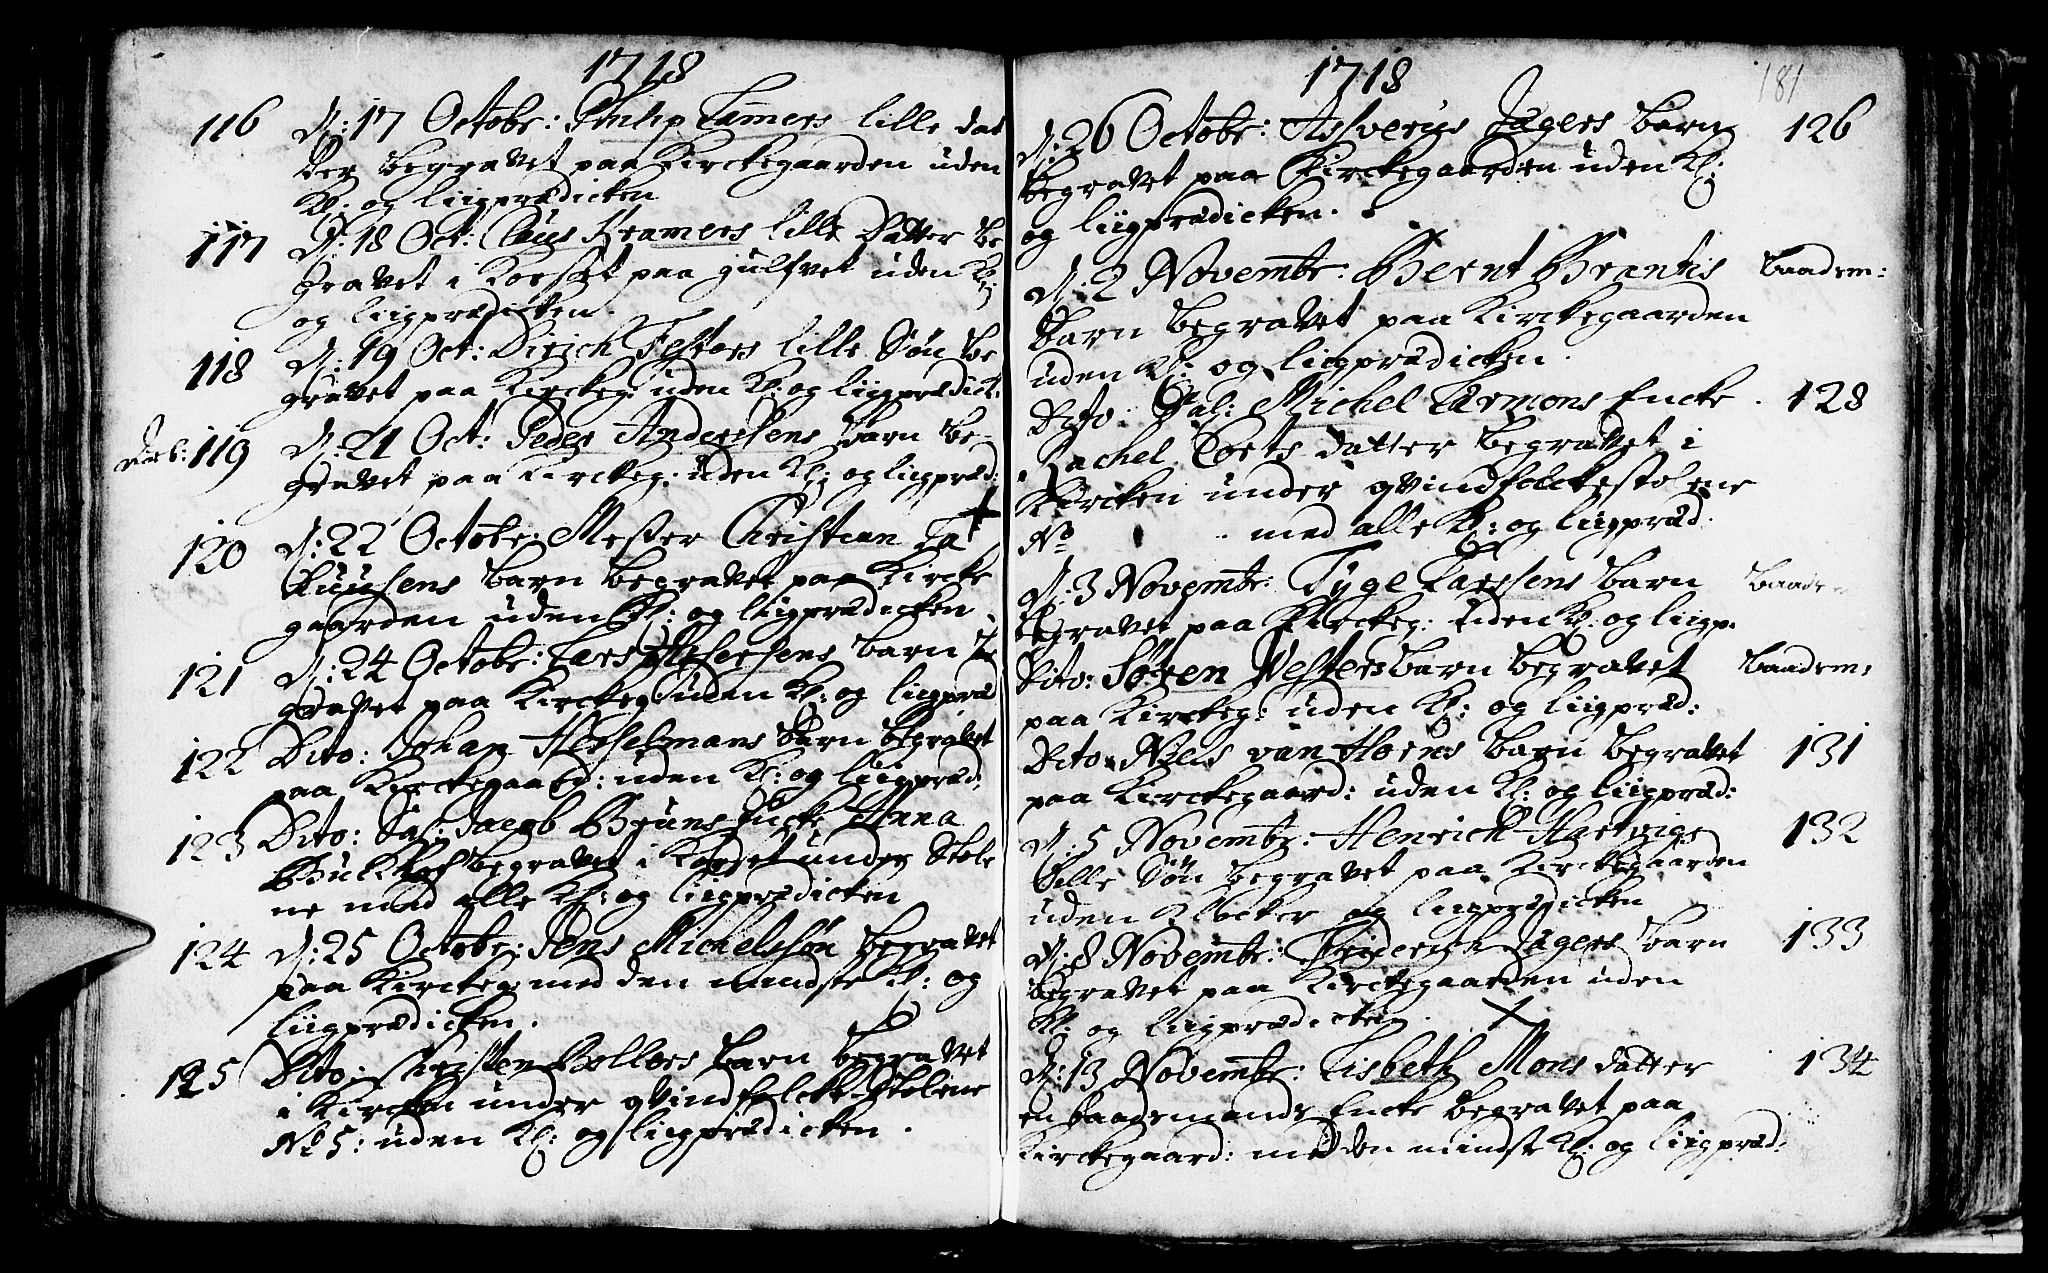 1718
116 D: 17 Octobr: Philip Lamers lille dat
ter begravet paa Kirckegaarden uden
Kl: og liigprædicken
117 D: 18 Oct: Claus Kramers lille Datter be
gravet i Koret paa gulfvet uden Kl:
og liigprædicken.
118 D: 19 Oct: Dirich Festors lille Søn be
gravet paa Kirckeg: uden Kl: og liigprædick:
119 D: 21 Oct: Peder Andersens barn be
gravet paa Kirckeg: uden Kl: og liigpræd:
120 D: 22 Octobr: Mester Christian
barn begravet paa Kircke
gaarden uden Kl: og liigprædicken.
121 D: 24 Octobr: Lars barn be
gravet paa Kirckeg: uden Kl: og liigpræd
122 Dito: Johan Hesselmans barn begravet
paa Kirckegaard: uden Kl: og liigpræd:
123 Dito: Sal: Jacob Bruns Encke Anna
begravet i Koret under Stole
ne med alle Kl: og liigprædicken
124 D: 25 Octobr: Jens Michelssøn begravet
paa Kirckeg: med den mindste Kl: og
liigprædicken.
125 Dito: Kirsten barn begravet
i Kircken under qvindfolcke Stolene
No 5: uden Kl: og liigprædicken.
1718 181
D: 26 Octobr: Assverus Jægers barn 126
begravet paa Kirckegaarden uden Kl:
og liigprædicken.
D: 2 Novembr: Bernt Brantis baadsm:
barn begravet paa Kirckegaarden
uden Kl: og liigprædicken.
Dito: Sal: Michel Larmons Encke. 128
Rachel datter begravet i
Kircken under qvindfolckestolene
No . med alle Kl: og liigpræd.
D: 3 Novembr: Tyge Larsens barn baads
begravet paa Kirckeg: uden Kl: og liigp.
Dito: Søren Vesters barn begravet baadsm:
paa Kirckeg: uden Kl: og liigpræd:
Dito Niels van Horns barn begravet 131
paa Kirckegaard: uden Kl: og liigpræd:
D: 5 Novembr: Henrich Hartvigs 132
lille Søn begravet paa Kirckegaarden
uden Klocker og liigprædicken
D: 8 Novembr: Friderich Jægers barn 133
begravet paa Kirckegaarden uden
Kl: og liigprædicken.
D: 13 Novembr: Lisbeth Mons datter 134
en baadsmands Encke begravet paa
Kirckegaard: med den mindste Kl: og liigpræd: